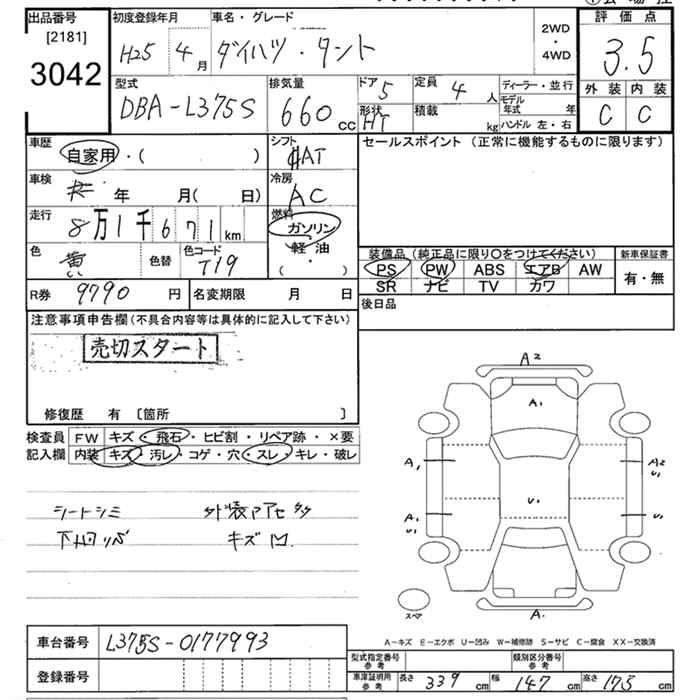 出品番号
[2181]
3042
初度登録年月
H25 4月
車名・グレード
ダイハツ・タント
2WD
・
4WD
評価点
3.5
外装 内装
C C
型式
DBA-L375S
排気量
660cc
ドア 5
形状 HT
定員 4人
積載 kg
ディーラー・並行
モデル年式 年
ハンドル 左・右
車歴
自家用・( )
車検 年 月( 日)
走行
8万1千671km
色 黄
色替
色コード T19
R券 9790円
名変期限 月 日
シフト AT
冷房 AC
燃料
ガソリン
軽油
( )
セールスポイント (正常に機能するものに限ります)
装備品(純正品に限り○をつけてください)
PS PW ABS エアB AW
SR ナビ TV カワ
新車保証書
有・無
後日品
注意事項申告欄(不具合内容等は具体的に記入して下さい)
売切スタート
修復歴 有 [箇所 ]
検査員記入欄
FW キズ・飛石・ヒビ割・リペア跡・×要
内装 キズ・汚レ・コゲ・穴・スレ・キレ・破レ
シートシミ
キズ凹
A2
A1
A1
A2
U1
A1
U1
U1
A1
スペア
A-キズ E-エクボ U-凹み W-補修跡 S-サビ C-腐食 XX-交換済
車台番号 L375S-0177993
登録番号
型式指定番号 参考
類別区分番号 参考
車庫証明用 参考
長さ 339cm
幅 147cm
高さ 175cm